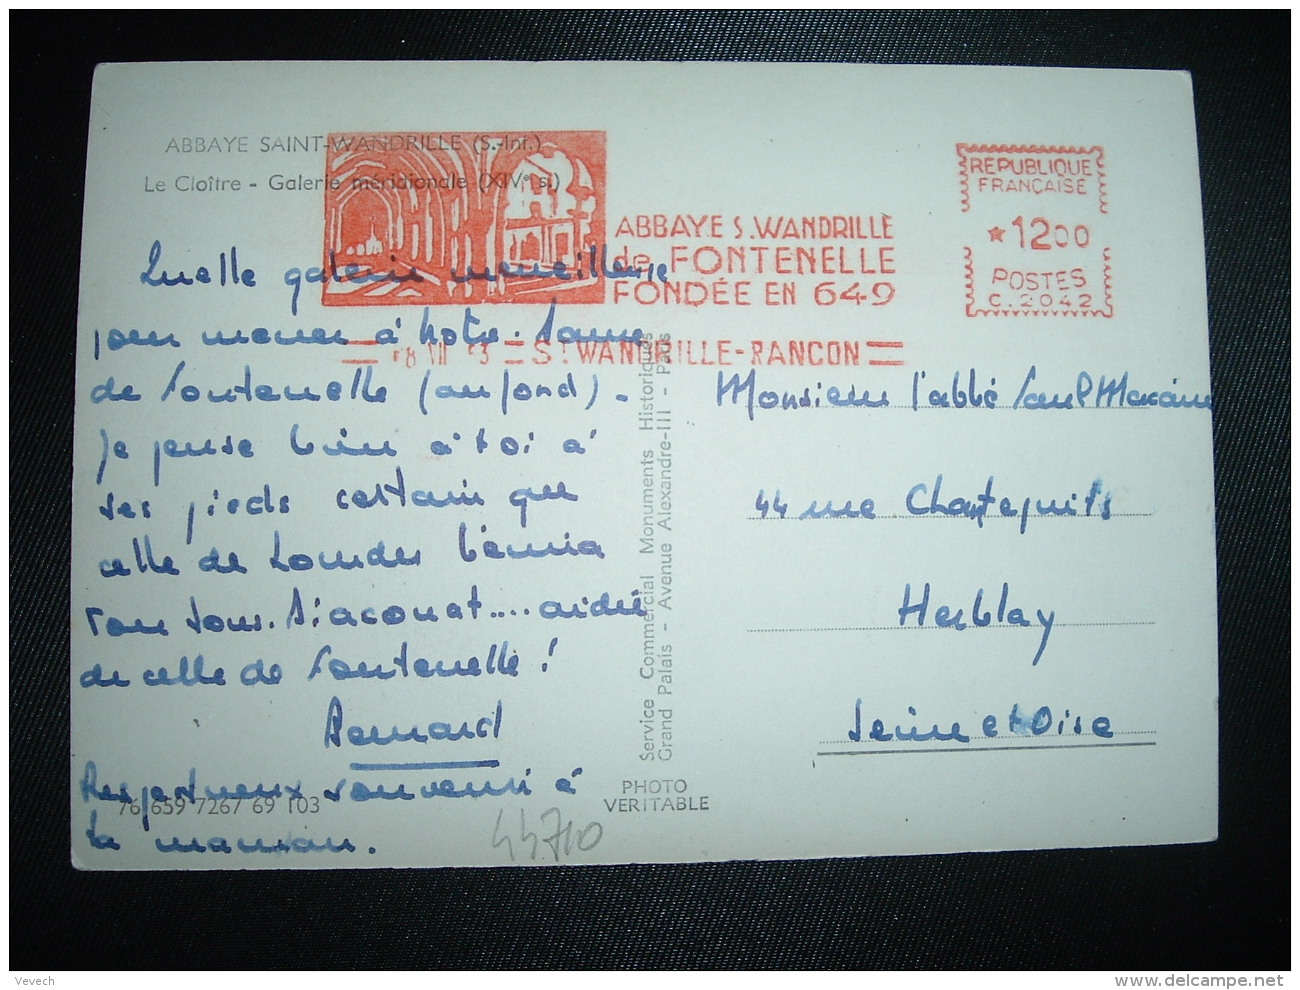 ABBAYE SAINT-WANDRILLE (S.-Inf.)
Le Cloître - Galerie méridionale (XIVe s.)
ABBAYE S. WANDRILLE
de FONTENELLE
FONDÉE EN 649
REPUBLIQUE
FRANÇAISE
*1200
POSTES
C.2042
ST WANDRILLE-RANCON
Quelle galerie merveilleuse
pour mener à Notre-Dame
de Fontenelle (au fond).
Je pense bien à toi à
ses pieds certain que
celle de Lourdes bénira
ton sous-diaconat.... aidée
de celle de Fontenelle !
Bernard
Respectueux souvenir à
ta maman.
Monsieur l'abbé Paul
44 rue Chantepuits
Herblay
Seine et Oise
Service Commercial Monuments Historiques
Grand Palais - Avenue Alexandre-III - Paris
PHOTO
VERITABLE
76 659 7267 69 103
44710
Vevech
www.delcampe.net